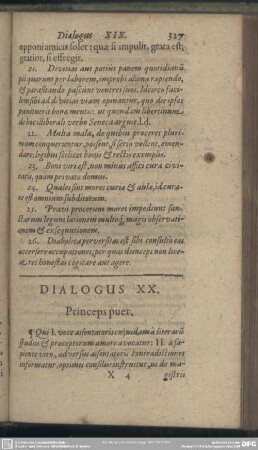 Dialogus XIX. 327
opponi amicis solet: quæ si impulit, grata est;
gratior, si effregit.
21. Devitias aut potius panem quotidianũ
pii quærunt per laborem, improbi aliena rapiendo,
& parasitando pascunt ventres suos. Idcirco faci-
lem sibi ad divitias viam opinantur, quo die ipsos
pœnituerit bonæ mentis: ut quendam libertinum
de hoc liberali verbo Seneca arguet. l. d.
22. Multa mala, de quibus proceres pluri-
mum conqueruntur, possent, si serio vellent, emen-
dare: legibus scilicet bonis & rectis exemplis.
23. Boni viri est, non minus affici cura civi-
tatis, quam privata domus.
24. Quales sint mores curiæ & aulæ, id cura-
re est omnium subditorum.
25. Prava procerum mores impediunt san-
ctarum legum lationem multoq́; magis observati-
onem & exsequutionem.
26. Diabolica perversitas est sibi consultò eas
accersere occupationes, per quas diu inceps non lice-
at res honestas cogitare aut agere.
DIALOGUS XX.
Princeps puer.
Qui I. voce assentatoris cujusdam à literarũ
studiis & præceptorum amore avocatur: II. a sa-
piente viro, adversus assentatoris contradictiones
informatur, optimis consiliis instruitur, ut de ma-
X 4 gistris